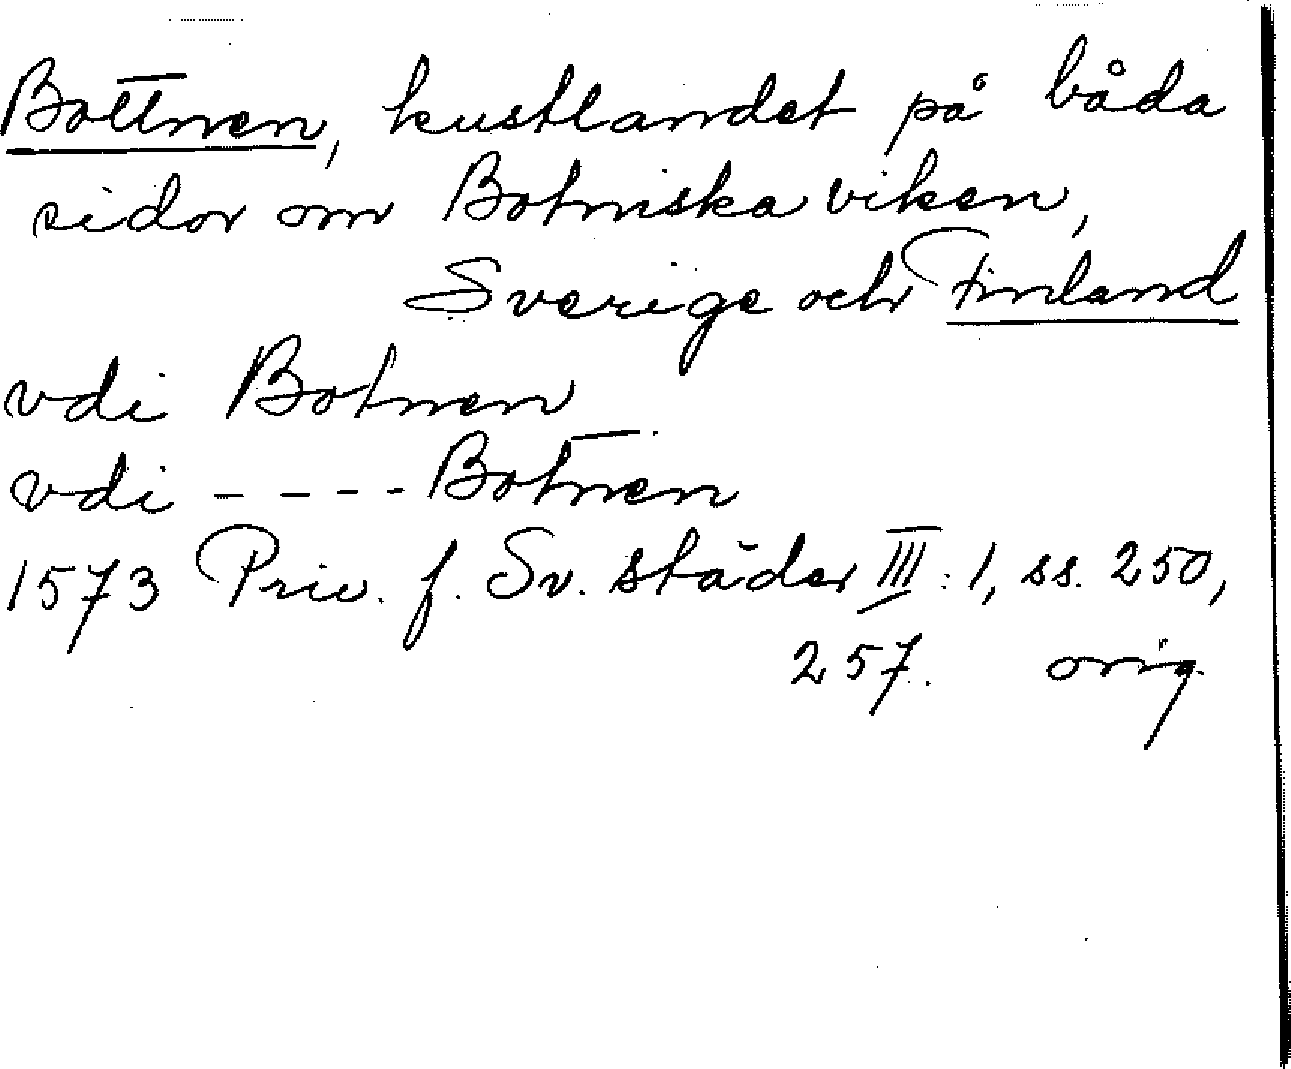 Bottnen, kustlandet på båda
sidor om Botniska viken,
Sverige och Finland
vdi Botnen
vdi - - - - Botnen
1573 Priv. f. Sv. städer III: 1, ss. 250,
257. orig.